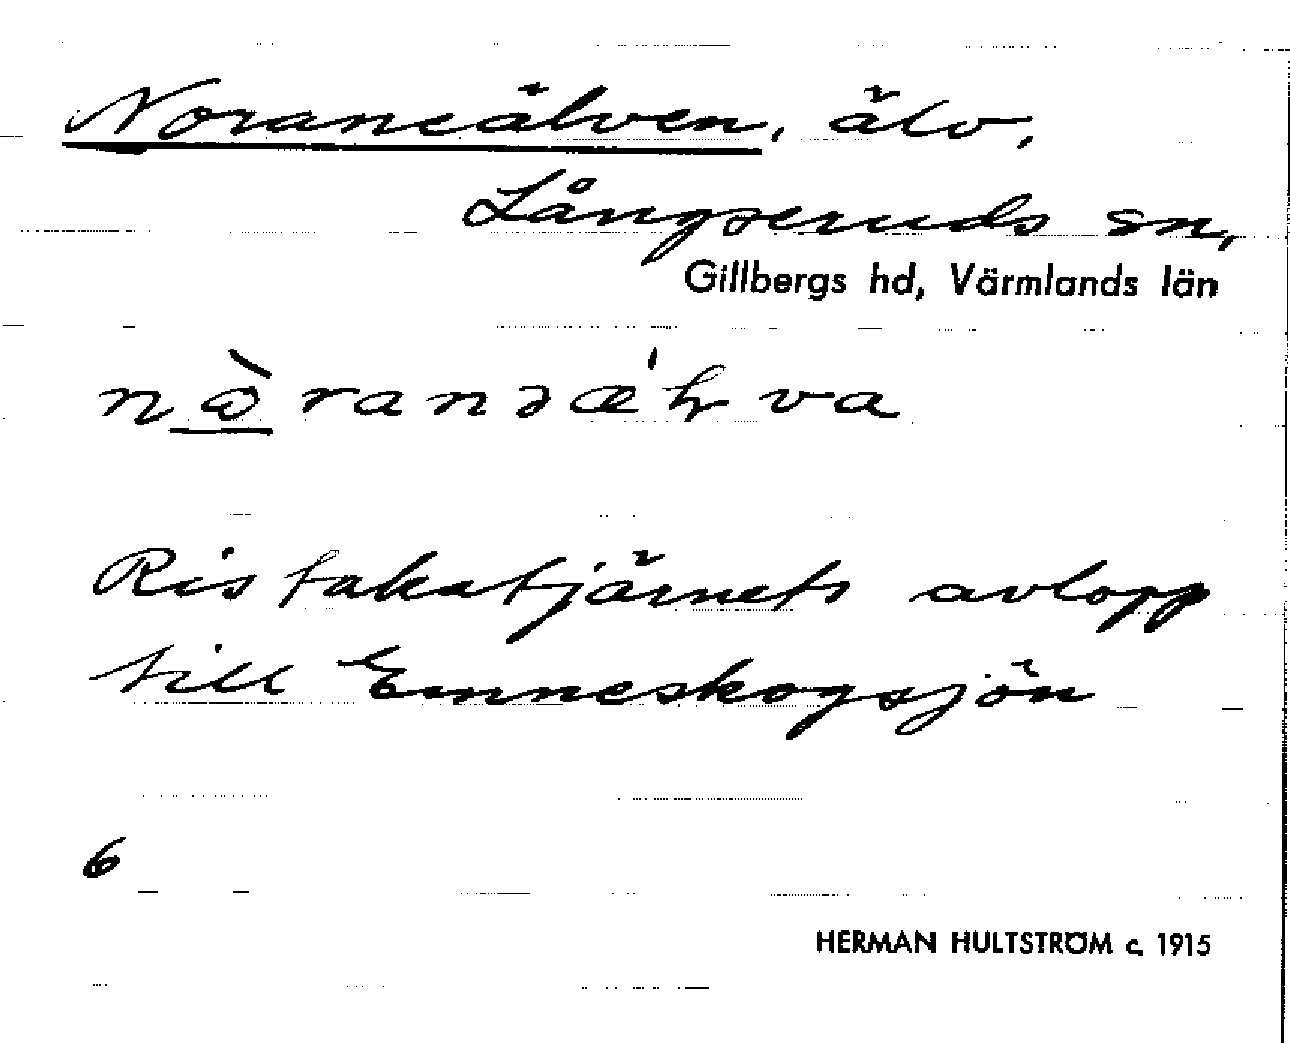 Noraneälven, älv,
Långseruds sn,
Gillbergs hd, Värmlands län
nɷ̀ranəæ'ɫva
Ristakatjärnets avlopp
till Enneskogsjön
6
HERMAN HULTSTRÖM c. 1915